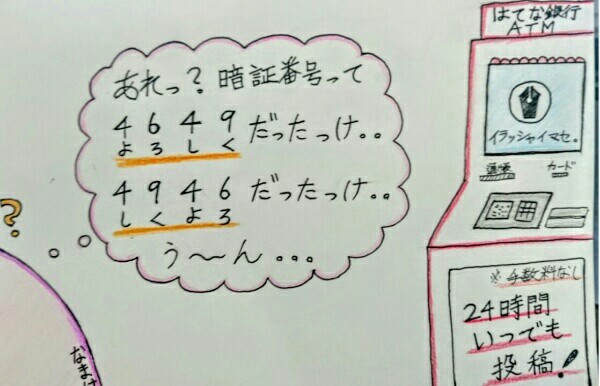 はてな銀行
ATM
あれっ？暗証番号って
4 6 4 9 だったっけ。。
よ ろ し く
4 9 4 6 だったっけ。。
し く よ ろ
う～ん...
イラッシャイマセ。
通帳
カード
?
※手数料なし
24時間
いつでも
投稿!
なまけ